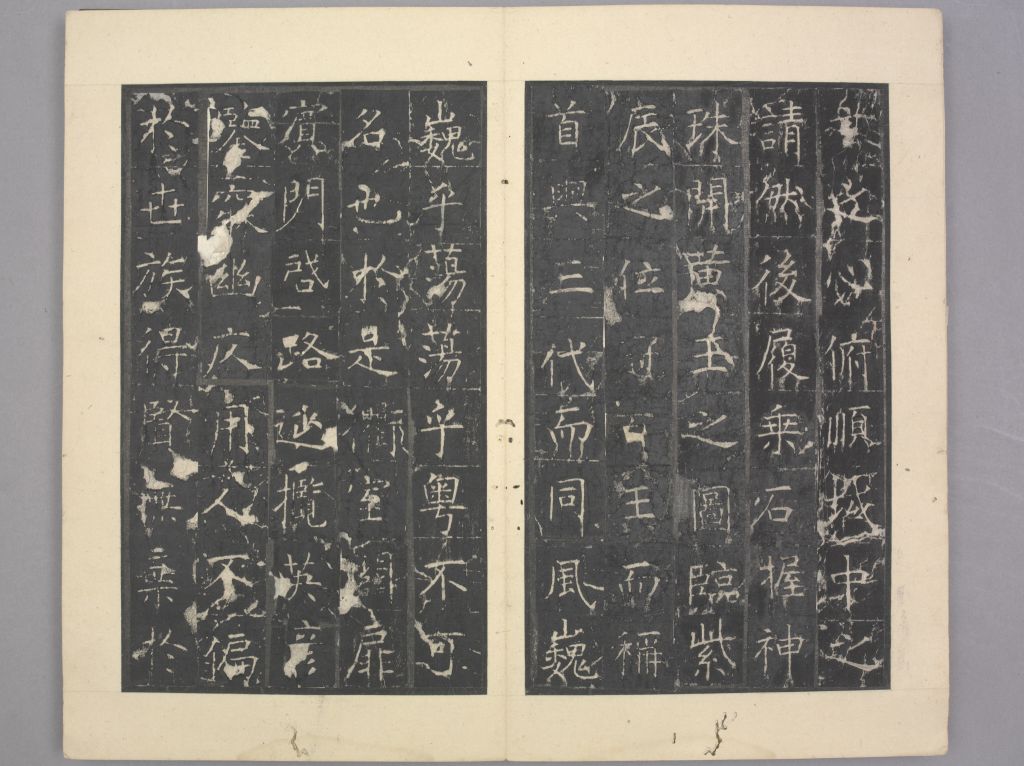 俯順域中之
請然後履乘石握神
珠開黃玉之圖臨紫
辰之位百王而稱
首與三代而同風巍
巍乎蕩蕩乎粵不可
名也於是衢室扉
賓門启路攬英彥
幽仄用人不偏
於世族得賢無棄於